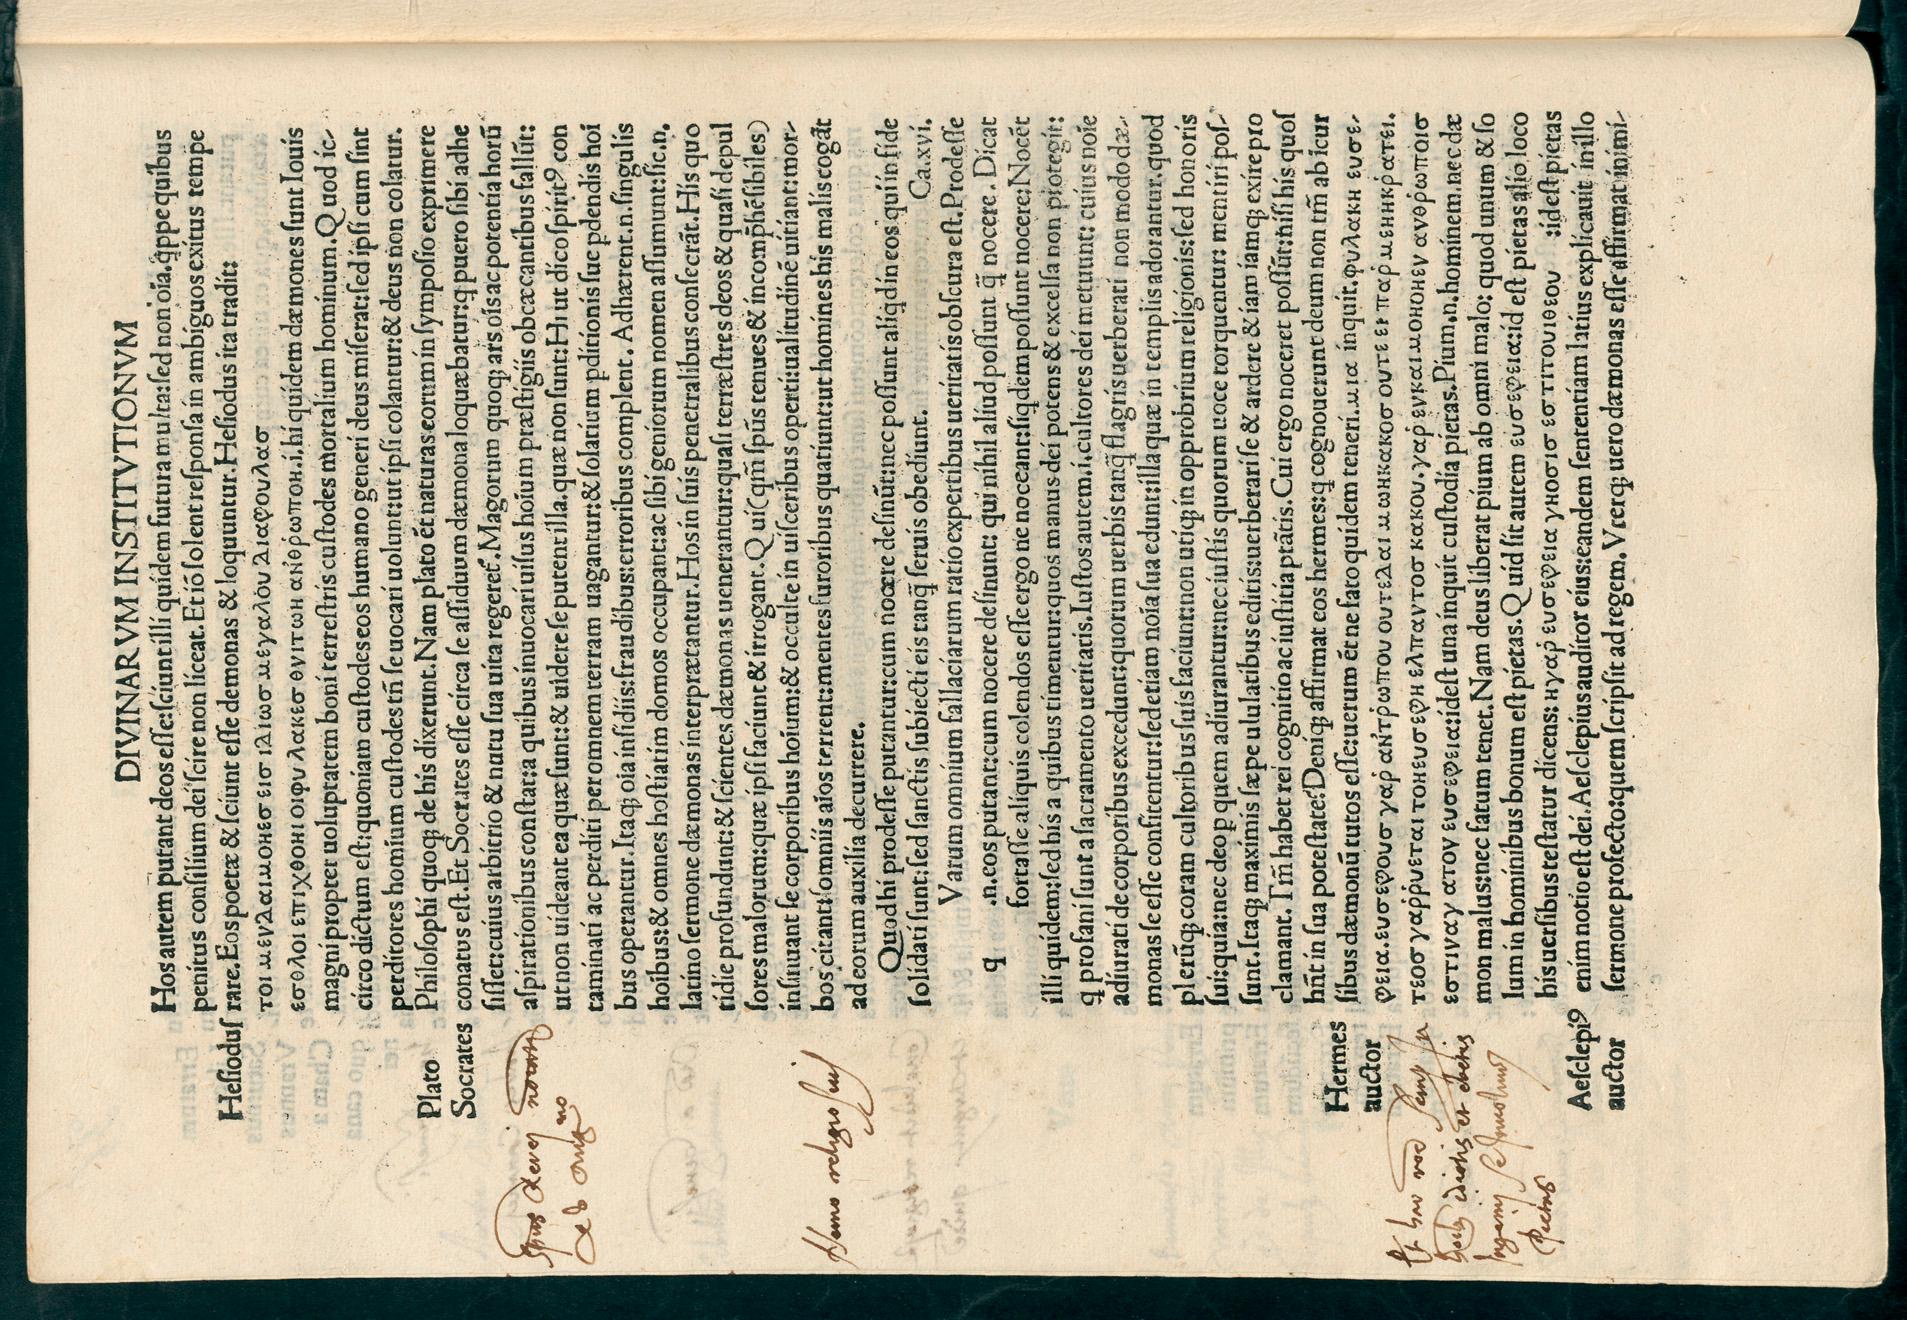 DIVINARVM INSTITVTIONVM
Hos autem putant deos esse: sciunt illi quidem futura multa: sed non oīa. q̄ppe quibus
penitus consilium dei scire non liceat. Et iō solent responsa in ambiguos exitus tempe
Hesiodus
rare. Eos poetæ & sciunt esse demonas & loquuntur. Hesiodus ita tradit:
τοι μεν Δαιμονεσ εισ ιΔιωσ μεγαλου Διαφουλασ
εσθλοι επιχθονιοι φυλακεσ θνιτων ανθρωπον. i. hi quidem dæmones sunt Iouis
magni propter uoluptatem boni terrestris custodes mortalium hominum. Quod ic-
circo dictum est: quoniam custodes eos humano generi deus miserat: sed ipsi cum sint
perditores hominum custodes tn̄ se uocari uolunt: ut ipsi colantur: & deus non colatur.
Plato
Philosophi quoqꝫ de his dixerunt. Nam plato ēt naturas eorum in symposio exprimere
Socrates
conatus est. Et Socrates esse circa se assiduum dæmona loquæbatur: q puero sibi adhe
sisset: cuius arbitrio & nutu sua uita regeret̄. Magorum quoqꝫ ars oīs ac potentia horū
aspirationibus constat: a quibus inuocari uisus hoīum præstigiis obcæcantibus fallūt:
ut non uideant ea quæ sunt: & uidere se putent illa. quæ non sunt: Hi ut dico spiritꝰ con
taminati ac perditi per omnem terram uagantur: & solarium pditionis suę pdendis hoī
bus operantur. Itaqꝫ oīa insidiis: fraudibus: erroribus complent. Adhærent. n. singulis
hoībus: & omnes hostiatim domos occupant: ac sibi geniorum nomen assumunt: sic. n.
latino sermone dæmonas interprætantur. Hos in suis penetralibus consecrāt. His quo
tidie profundunt: & scientes dæmonas uenerantur: quasi terræstres deos & quasi depul
sores malorum: quæ ipsi faciunt & irrogant. Qui (qm̄ sp̄us tenues & incomp̄hēsibiles)
insinuant se corporibus hoīum: & occulte in uisceribus operti: ualitudinē uitiant: mor-
bos citant: somniis aīos terrent: mentes furoribus quatiunt: ut homines his malis cogāt
ad eorum auxilia decurrere.
Quod hi prodesse putantur: cum nocere desinūt: nec possunt aliqd in eos qui in fide
solidati sunt: sed sanctis subiecti eis tanq̄ seruis obediunt. Ca. xvi.
Varum omnium fallaciarum ratio expertibus ueritatis obscura est. Prodesse
q .n. eos putant: cum nocere desinunt: qui nihil aliud possunt q̄ nocere. Dicat
fortasse aliquis colendos esse ergo ne noceant: siqdem possunt nocere: Nocēt
illi quidem: sed his a quibus timentur: quos manus dei potens & excelsa non protegit:
q profani sunt a sacramento ueritatis. Iustos autem. i. cultores dei metuunt: cuius noīe
adiurati de corporibus excedunt: quorum uerbis tanq̄ flagris uerberati non modo dæ-
monas se esse confitentur: sed etiam noīa sua edunt: illa quæ in templis adorantur. quod
plerūqꝫ coram cultoribus suis faciunt: non utiqꝫ in opprobrium religionis: sed honoris
sui: quia: nec deo p quem adiurantur: nec iustis quorum uoce torquentur: mentiri pos-
sunt. Itaqꝫ maximis sæpe ululatibus editis: uerberari se & ardere & iam iamqꝫ exire pro
clamant. Tm̄ habet rei cognitio ac iustitia ptātis. Cui ergo noceret possūt: nisi his quos
hn̄t in sua potestate? Deniqꝫ affirmat eos hermes: q cognouerunt deum non tm̄ ab icur
Hermes
sibus dæmonū tutos esse: uerum ēt ne fato quidem teneri. μια inquit. φυλακη ευσε-
auctor
φεια. ευσεφουσ γαρ ανΤρωπου ουτε Δαι μωνκακοσ ουτε ει παρμενηκρατει.
τεοσ γαρρυεται τονευσεφη εΛπαντοσ κακου. γαρ ενκαι μονονεν ανθρωποισ
εστιναγ ατον ευσεφεια: idest una inquit custodia pietas. Pium. n. hominem. nec dæ
mon malus: nec fatum tenet. Nam deus liberat pium ab omni malo: quod unum & so
lum in hominibus bonum est pietas. Quid sit autem ευσεφεια: id est pietas alio loco
his uersibus testatur dicens: ηγαρ ευσεφεια γνοσισ εστιτουιθεου :idest pietas
Aesclepiꝰ
enim notio est dei. Aesclepius auditor eius: eandem sententiam latius explicauit in illo
auctor
sermone profecto: quem scripsit ad regem. Vterqꝫ uero dæmonas esse affirmat inimi-
Homo religiosus